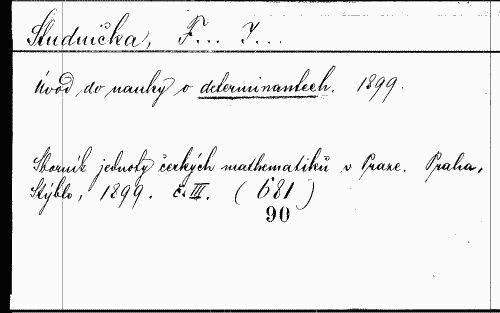 Studnička, F... J...
Úvod do nauky o determinantech. 1899.
Sborník jednoty českých mathematiků v Praze. Praha,
Rýblo, 1899. č. III. (681)
90